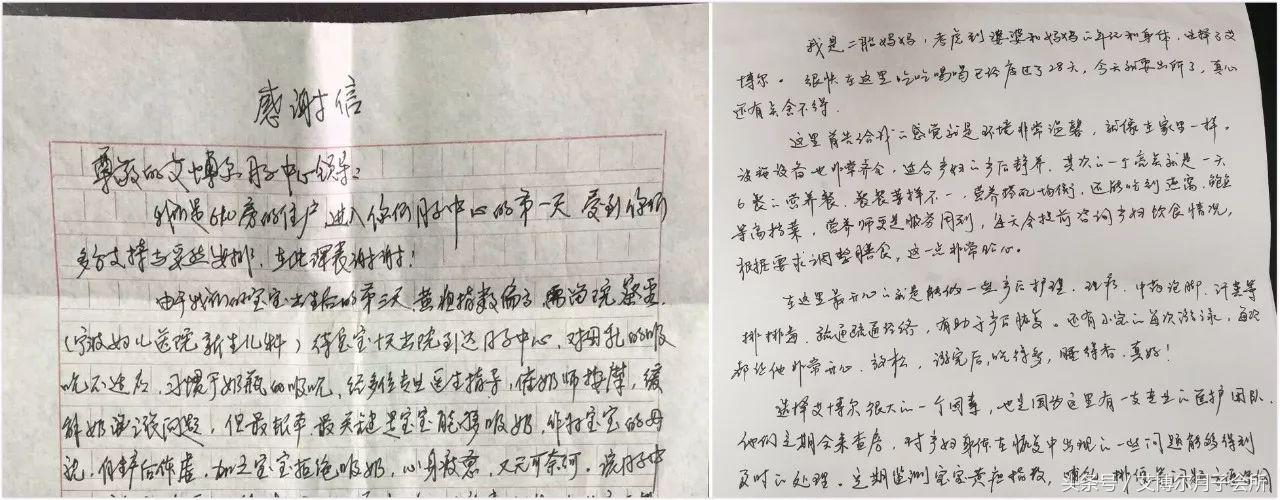 感谢信
尊敬的艾博尔月子中心领导：
我是610房的住户 进入你们月子中心的第一天 受到你们
多方支持与妥然安排，在此深表谢谢！
由于我们的宝宝出生后的第三天，黄疸指数偏高 需尚院
（宁波妇儿医院新生儿科）待宝宝十天出院到达月子中心，对母乳的吸
吮不适应，习惯于奶瓶的吸吮，经多位专业医生指导，催奶师按摩，缓
解奶涨问题，但最根本最关键是宝宝能够吸奶，作为宝宝的母
亲，自产后体虚，加之宝宝拒绝吸奶，心身疲惫，又无可奈何，该月子中
我是二胎妈妈，考虑到婆婆和妈妈的年纪和身体，选择了艾
博尔。很快在这里吃吃喝喝已经度过了28天，今天就要出所了，真心
还有点舍不得。
这里首先给我的感觉就是环境非常温馨，就像在家里一样。
设施设备也非常齐全，适合产妇的产后静养。其次的一个亮点就是一天
6餐的营养餐，餐餐菜样不一，营养搭配均衡，还能吃到燕窝、鲍鱼
等高档菜，营养师更是服务周到，每天会提前咨询产妇饮食情况，
根据要求调整膳食，这一点非常贴心。
在这里最开心的就是能做一些产后护理，理疗，中药泡脚，汗蒸等
排排毒，疏通疏通经络，有助于产后恢复。还有小宝的每次游泳，每次
都让他非常开心、放松，游完后，吃得香，睡得香，真好！
选择艾博尔很大的一个因素，也是因为这里有一支专业的医护团队。
他们定期会来查房，对产妇身体在恢复中出现的一些问题能够得到
及时的处理。定期监测宝宝黄疸指数，
头条号／艾博尔月子会所